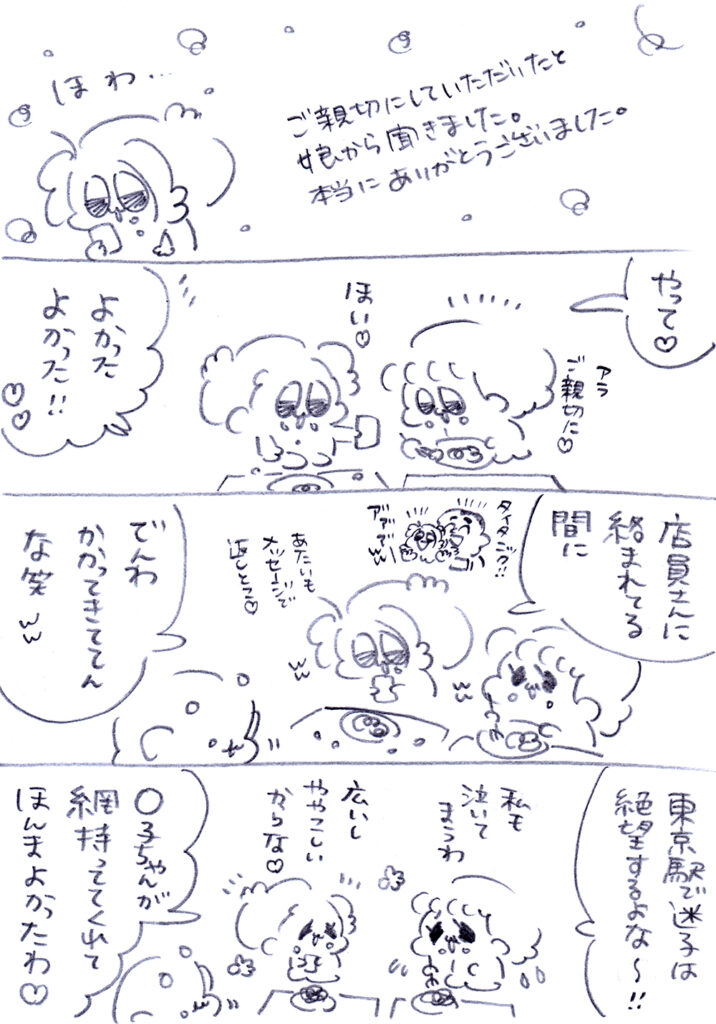 ほわ…
ご親切にしていただいたと
娘から聞きました。
本当にありがとうございました。
やって♡
アラ
ご親切に♡
ほい♡
よかった
よかった!!
♡♡
店員さんに
絡まれてる
間に
タイミング!!
アァァァww
あたいも
メッセージで
返しとこ♡
でんわ
かかってきててん
な笑ww
ww
ww
東京駅で迷子は
絶望するよな〜!!
私も
泣いて
まうわ
広いし
ややこしい
からな♡
〇子ちゃんが
網持っててくれて
ほんまよかったわ♡